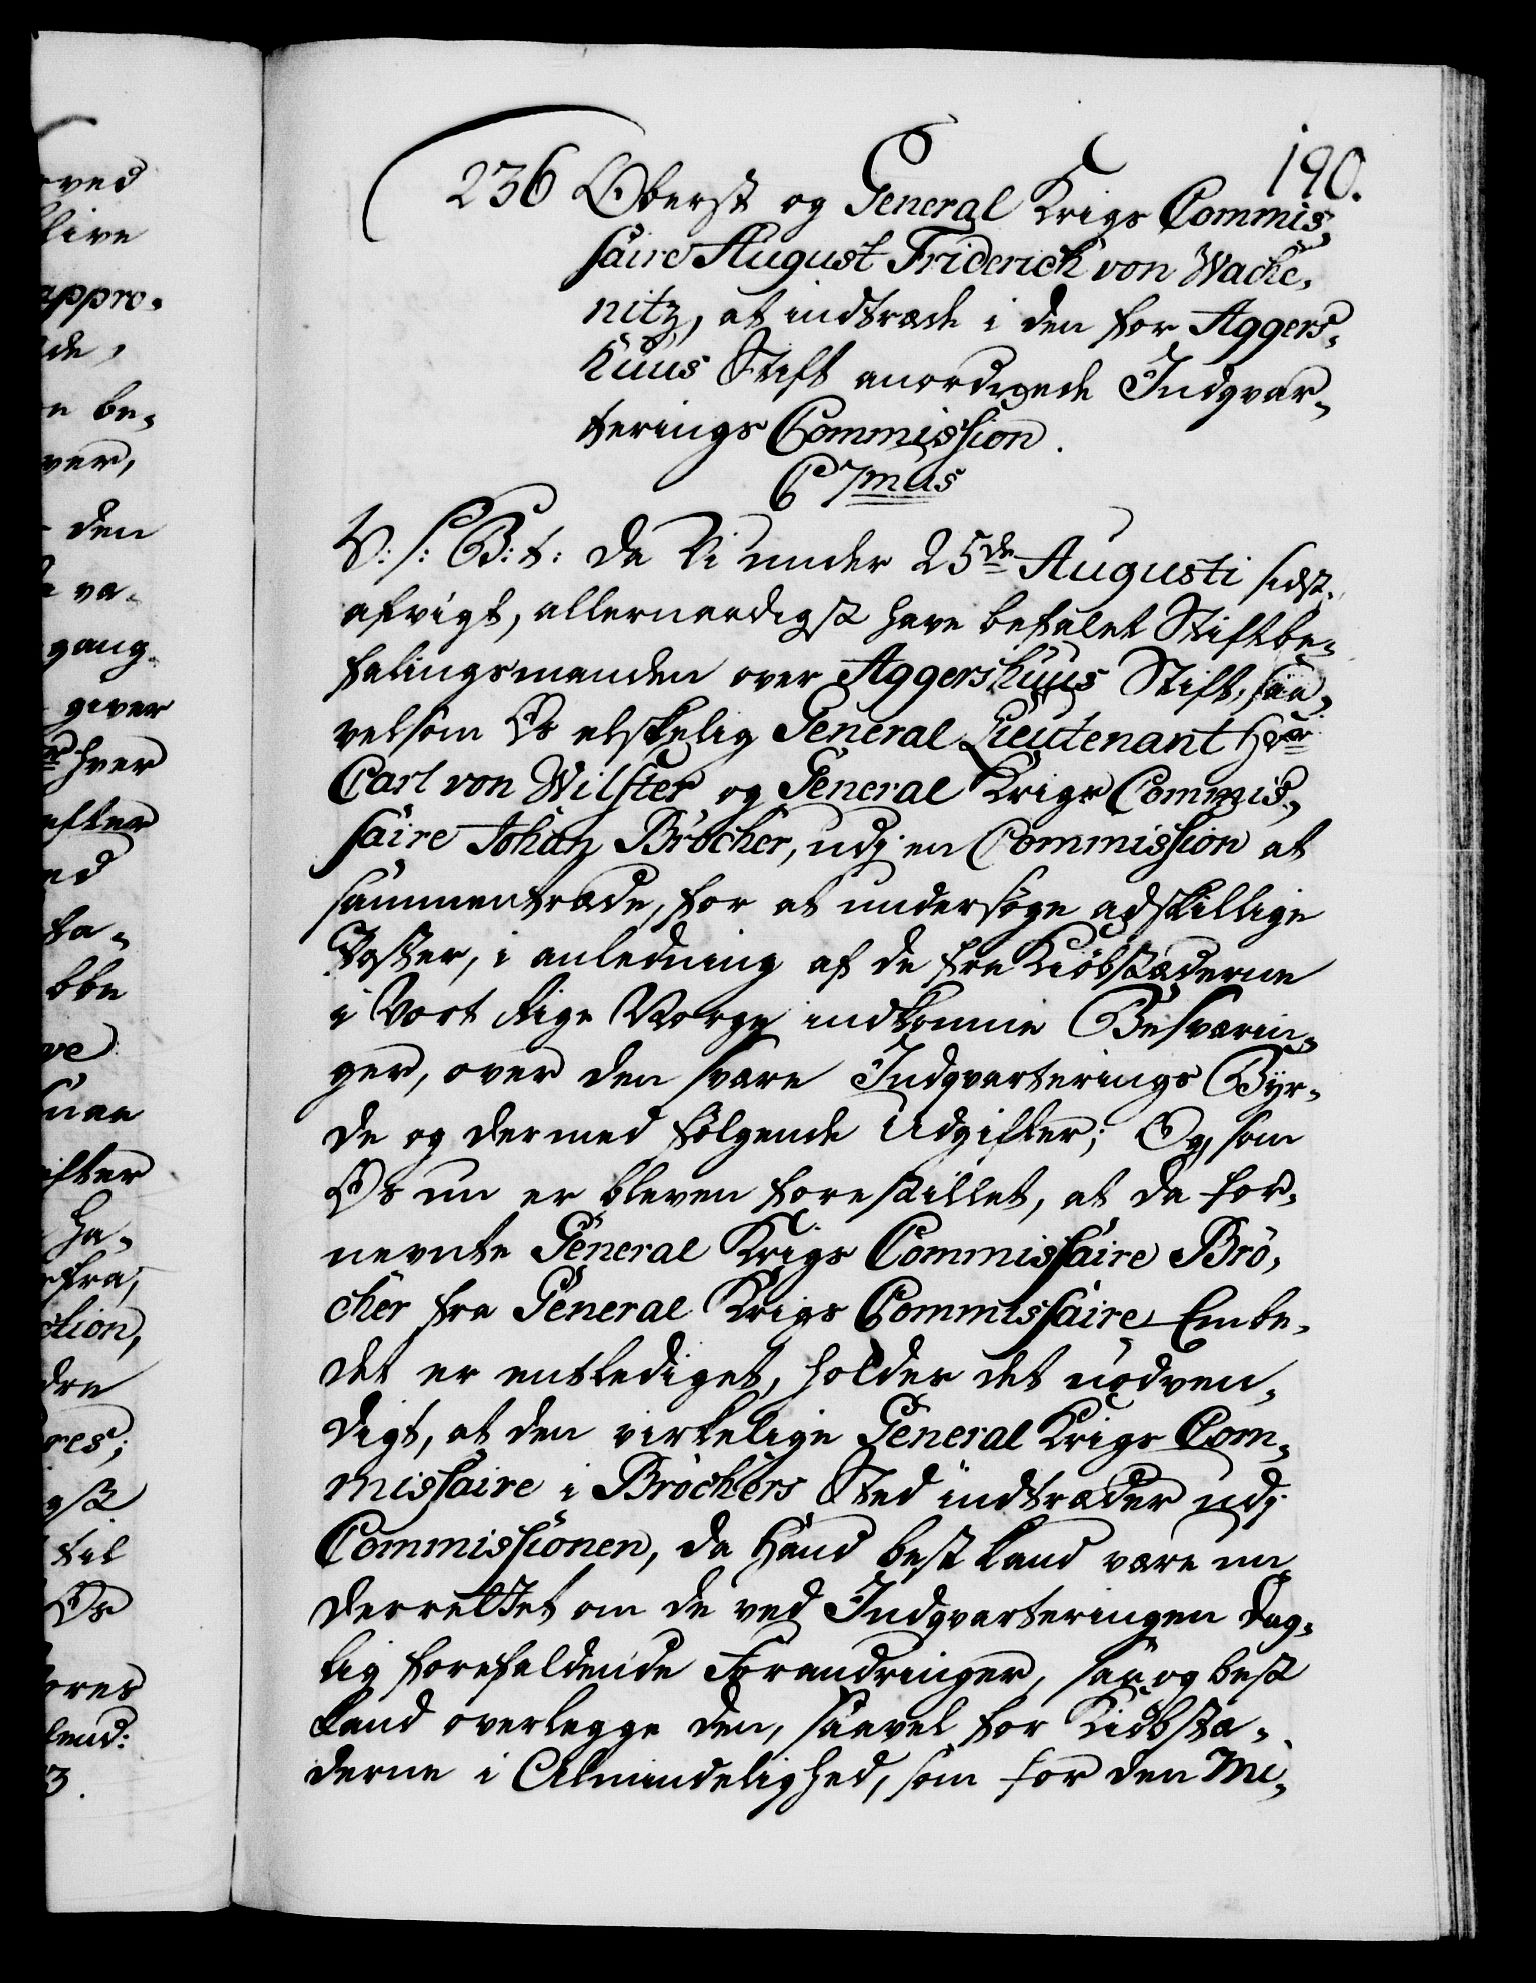 190.
236 Oberst og General Krigs Commis,
saire August Friderich von Wache,
nitz, at indtræde i den for Aggers,
huus Stift anordnede Indqvar,
terings Commission.
C 7mus
V: S: G: B: t: Da Vi under 25de Augusti sidst,
afvigt, allernaadigst have befalet Stiftbe,
falingsmanden over Aggershuus Stift, saa,
velsom Os elskelig General Lieutenant Herr
Carl von Wilster og General Krigs Commis,
saire Johan Bröcher, udj en Commission at
sammentræde, for at undersøge adskillige
Poster, i anledning af de fra Kiöbstæderne
i Vort Rige Norge indkomne Besværin,
ger, over den svare Indqvarterings Byr,
de og dermed fölgende Udgifter; Og som
Os nu er bleven forestillet, at da for,
nevnte General Krigs Commissaire Brö,
cher fra General Krigs Commissaire Embe,
det er entlediget, holder det nödven,
digt, at den virkelige General Krigs Com,
missaire i Bröchers Sted indtræder udj
Commissionen, da Hand best kand være un,
derrettet om de ved Indqvarteringen dag,
lig forefaldende Forandringer, saa og best
kand overlegge den, saavel for Kiöbstæ,
derne i Almindelighed, som for den Mi,
ved
blive
appro,
de,
be,
ver,
den
va,
gang,
giver
hver
efter
ed
fa,
bbe
ve
efter
ha,
fra,
ction,
dre
res;
gst
til
Os
ores
3.